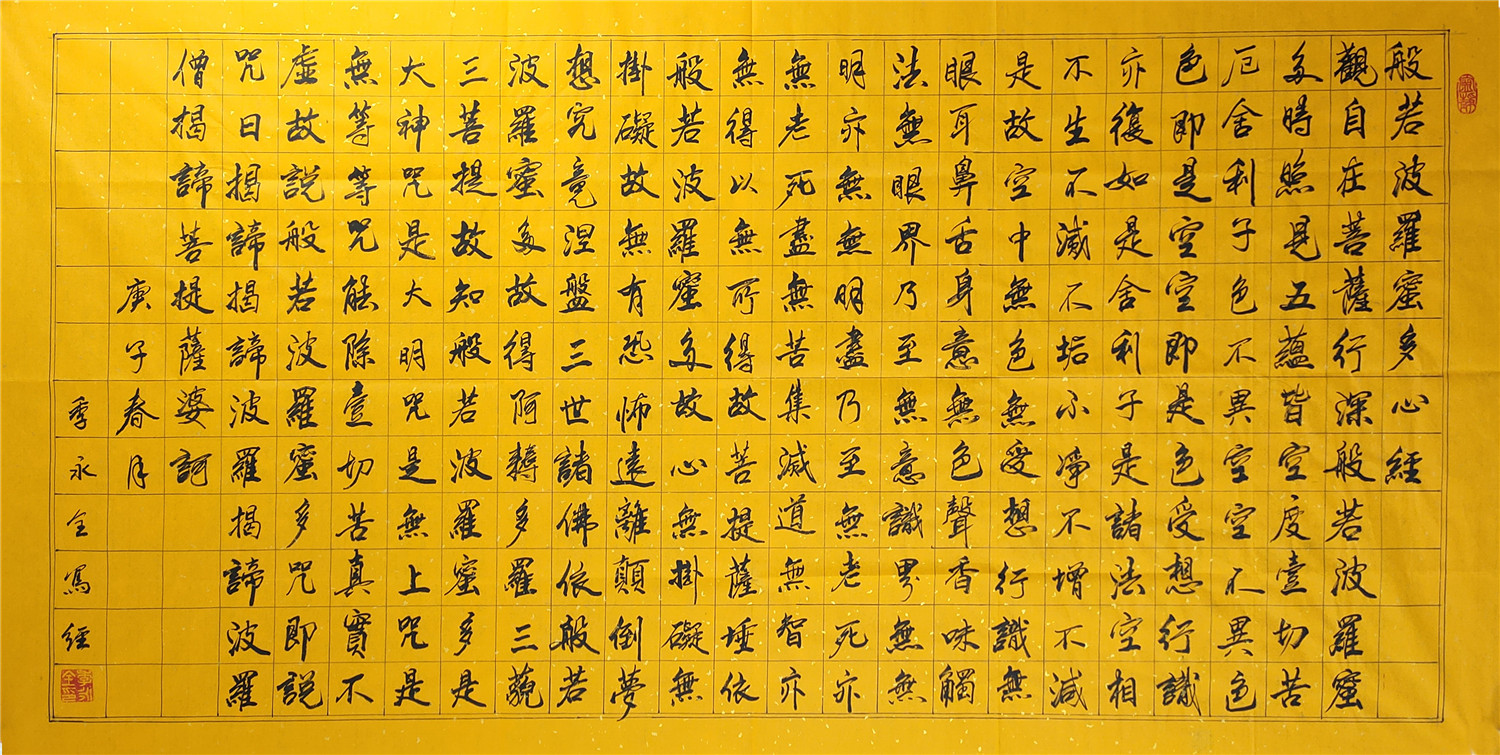 般若波羅蜜多心經
觀自在菩薩行深般若波羅蜜
多時照見五蘊皆空度壹切苦
厄舍利子色不異空空不異色
色即是空空即是色受想行識
亦復如是舍利子是諸法空相
不生不滅不垢不淨不增不減
是故空中無色無受想行識無
眼耳鼻舌身意無色聲香味觸
法無眼界乃至無意識界無無
明亦無無明盡乃至無老死亦
無老死盡無苦集滅道無智亦
無得以無所得故菩提薩埵依
般若波羅蜜多故心無掛礙無
掛礙故無有恐怖遠離顛倒夢
想究竟涅盤三世諸佛依般若
波羅蜜多故得阿耨多羅三藐
三菩提故知般若波羅蜜多是
大神咒是大明咒是無上咒是
無等等咒能除壹切苦真實不
虛故說般若波羅蜜多咒即說
咒曰揭諦揭諦波羅揭諦波羅
僧揭諦菩提薩婆訶
庚子春月
季永全寫經